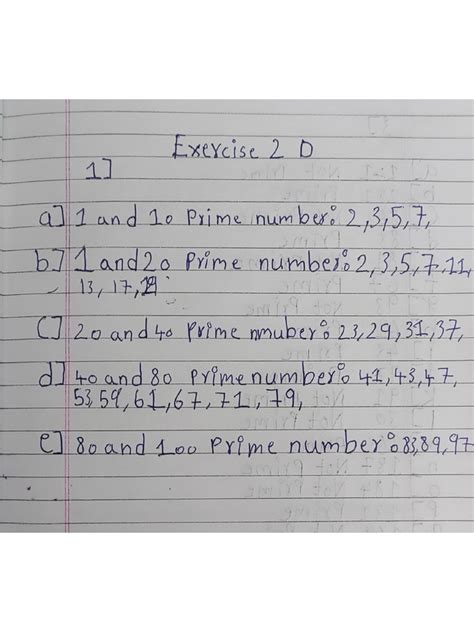 Exercise 2 D
1]
a] 1 and 10 Prime number: 2,3,5,7,
b] 1 and 20 Prime number: 2,3,5,7,11,
13, 17, 19
c] 20 and 40 Prime nmuber: 23,29,31,37,
d] 40 and 80 Prime number: 41,43,47,
53,59,61,67,71,79,
e] 80 and 100 Prime number: 83,89,97